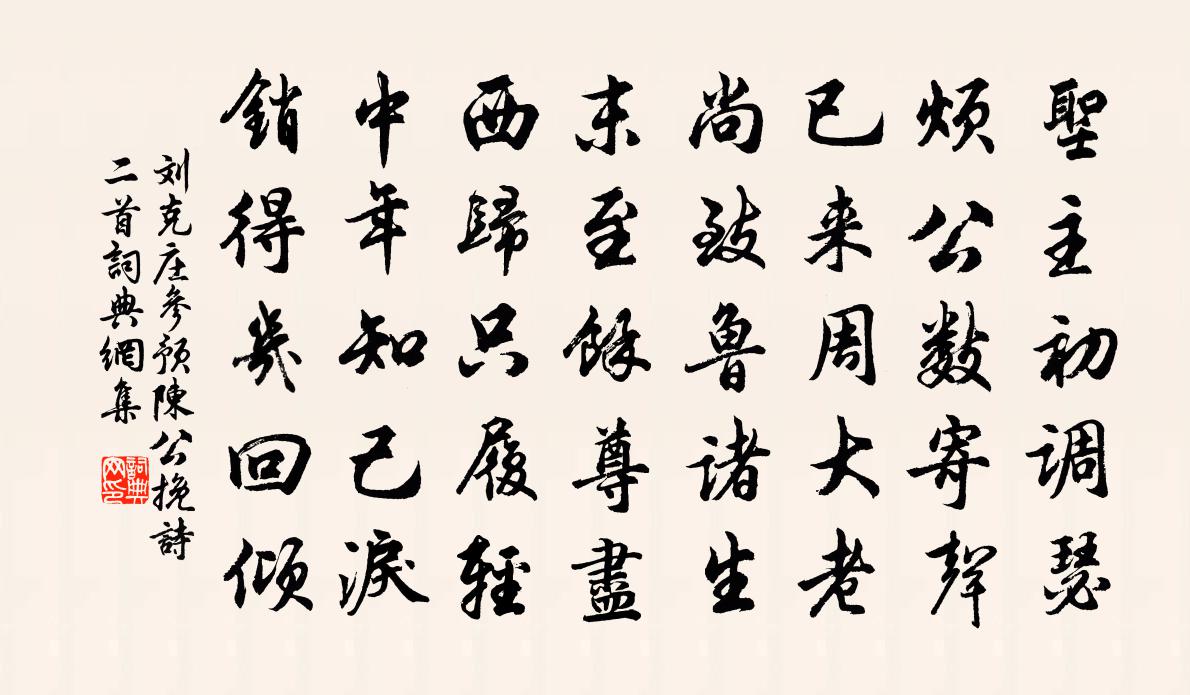 聖主初调瑟
烦公數寄聲
已来周大老
尚致鲁诸生
末至餘尊盡
西歸只履輕
中年知己淚
銷得幾回倾
刘克庄參预陳公挽詩
二首詞典網集
詞典网印